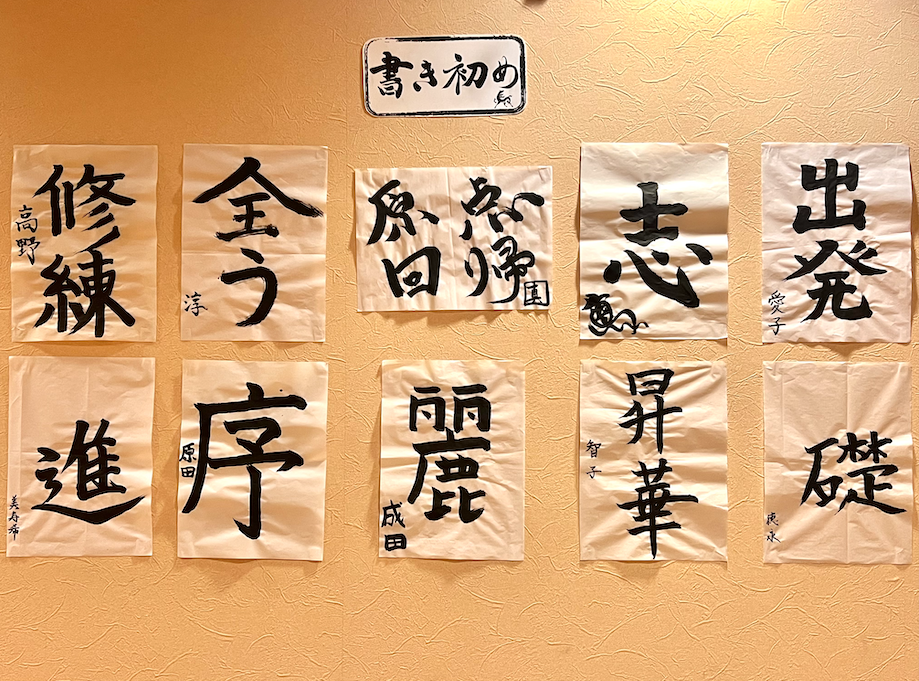 書き初め
修練
高野
全う
淳
原点
回帰
真
志
出発
愛子
進
美寿希
序
原田
麗
成田
昇華
智子
礎
徳永